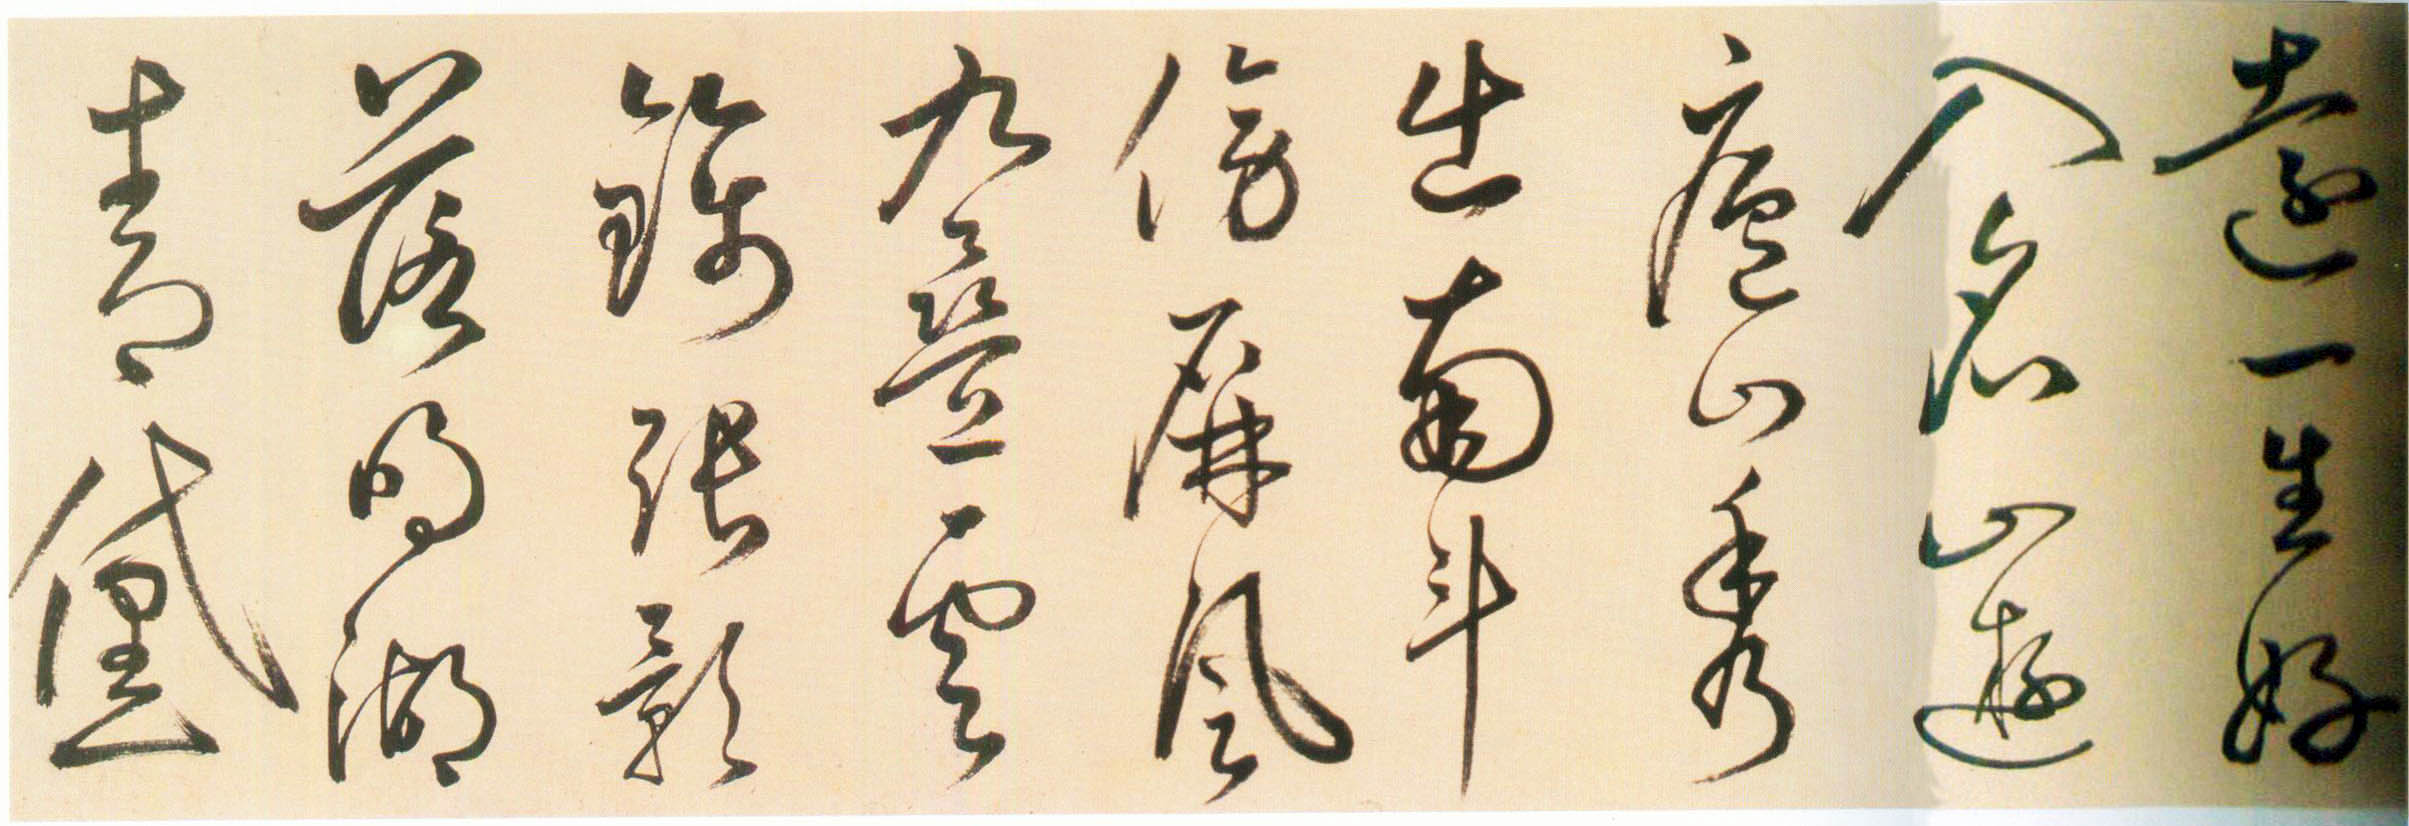 遠一生好
入名山遊
廬山秀
出南斗
傍屏風
九疊雲
錦張影
落明湖
青黛